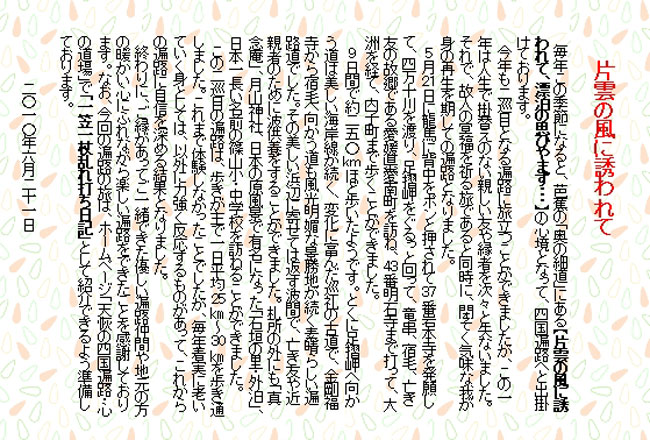 片雲の風に誘われて
毎年、この季節になると、芭蕉の「奥の細道」にある【片雲の風に誘
われて、漂泊の思ひやまず…】の心境となって、四国遍路へと出掛
けております。
今年も二巡目となる遍路に旅立つことができましたが、この一
年は人生で掛替えのない親しい友や縁者を次々と失ないました。
それで、故人の冥福を祈る旅であると同時に、閉そく気味な我が
身の再生を期しての遍路となりました。
５月21日に龍馬に背中をポンと押されて37番岩本寺を発願し
て、四万十川を渡り、足摺岬をぐるっと回って、竜串、宿毛、亡き
友の故郷である愛媛県愛南町を訪ね、43番明石寺まで打って、大
洲を経て、内子町まで歩くことができました。
９日間で約二五〇kmほど歩いたようです。とくに足摺岬へ向か
う道は美しい海岸線が続く、変化に富んだ巡礼の古道で、金剛福
寺から宿毛へ向かう道も風光明媚な景勝地が続く素晴らしい遍
路道でした。その美しい浜辺に寄せては返す波間で、亡き友や近
親者のために波供養をすることができました。札所の外にも「真
念庵」、月山神社、日本の原風景で有名になった「石垣の里・外泊」、
日本一長い名前の篠山小・中学校を訪ねることができました。
この二巡目の遍路は、歩きが主で一日平均25km～30kmを歩き通
しました。これまで体験しなかったことでしたが、毎年着実に老い
ていく身としては、以外に力強く反応するものがあって、これから
の遍路に自信を深める結果となりました。
終わりに、ご縁があってご一緒できた優しい遍路仲間や地元の方
の暖かい心にふれながら楽しい遍路をできたことを感謝しており
ます。なお、今回の遍路の旅は、ホームページ「天恢の四国遍路・心
の道場」で【一笠一杖乱れ打ち日記】として紹介できるよう準備し
ております。
二〇一〇年六月二十一日